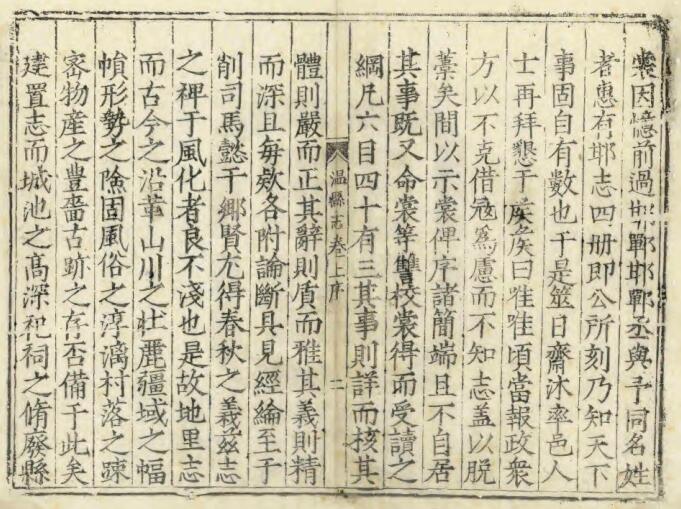 裳因憶前過邯鄲邯鄲丞與予同名姓
者惠有邯志四册即公所刻乃知天下
事固自有數也于是筮日齋沐率邑人
士再拜懇于侯侯曰唯唯頃當報政衆
方以不克借寇爲慮而不知志盖以脱
藁矣間以示裳俾序諸簡端且不自居
其事既又命裳等讐校裳得而受讀之
綱凡六目四十有三其事則詳而核其
温縣志卷上序 二
體則嚴而正其辭則質而雅其義則精
而深且每欵各附論斷具見經綸至于
削司馬懿于鄉賢尤得春秋之義兹志
之裨于風化者良不淺也是故地里志
而古今之沿革山川之壯麗疆域之幅
幀形勢之險固風俗之淳漓村落之踈
宻物産之豐嗇古跡之存否備于此矣
建置志而城池之髙深祀祠之脩廢縣